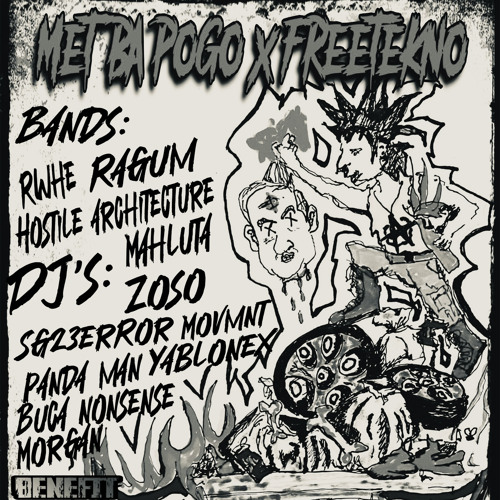 MET BA POGO X FREETEKNO
BANDS:
RWHE RAGUM
HOSTILE ARCHITECTURE
MAHLUTA
DJ'S: ZOSO
SG23ERROR MOVMNT
PANDA MAN YABLONEX
BUCA NONSENSE
MORGAN
BENEFIT